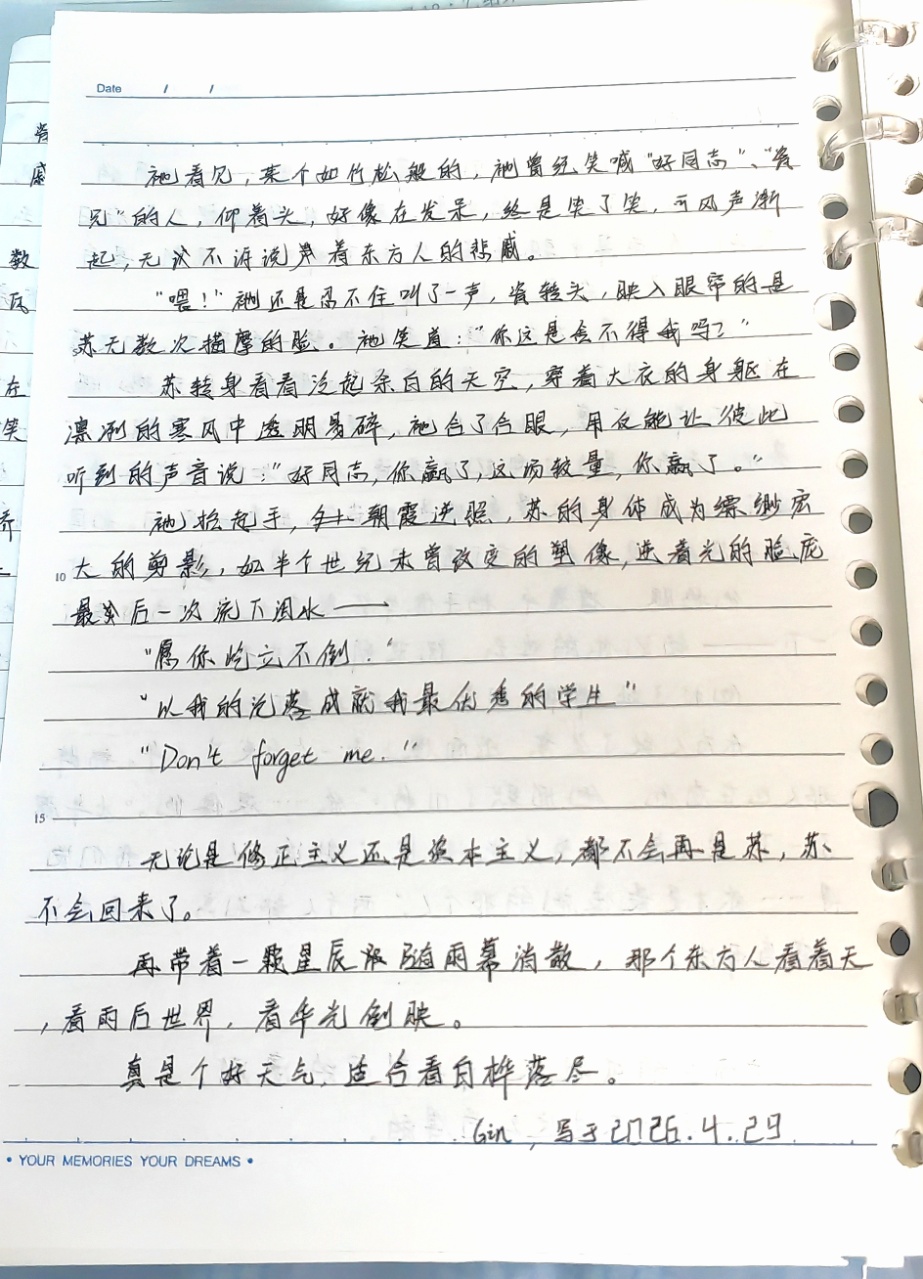 Date / /
祂看见，某个如竹松般的，祂曾经笑喊"好同志"、"瓷
兄"的人，仰着头，好像在发呆，终是笑了笑，可风声渐
起，无次不诉说声着东方人的悲戚。
"喂！"祂还是忍不住叫了一声，瓷转头，映入眼帘的是
苏无数次描摩的脸。祂笑道："你这是舍不得我吗？"
苏转身看着泛起余白的天空，穿着大衣的身躯在
凛冽的寒风中透明易碎，祂合了合眼，用仅能让彼此
听到的声音说："好同志，你赢了，这场较量，你赢了。"
祂抬起手，朝霞逆照，苏的身体成为缥缈宏
10 大的剪影，如半个世纪未曾改变的塑像，逆着光的脸庞
最后一次流下泪水——
"愿你屹立不倒。"
"以我的沉落成就我最优秀的学生"
"Don't forget me."
15
无论是修正主义还是资本主义，都不会再是苏，苏
不会回来了。
再带着一颗星辰随雨幕消散，那个东方人看着天
，看雨后世界，看华光倒映。
真是个好天气，适合看白桦落尽。
Gin，写于2026.4.29
• YOUR MEMORIES YOUR DREAMS •
数
左
笑